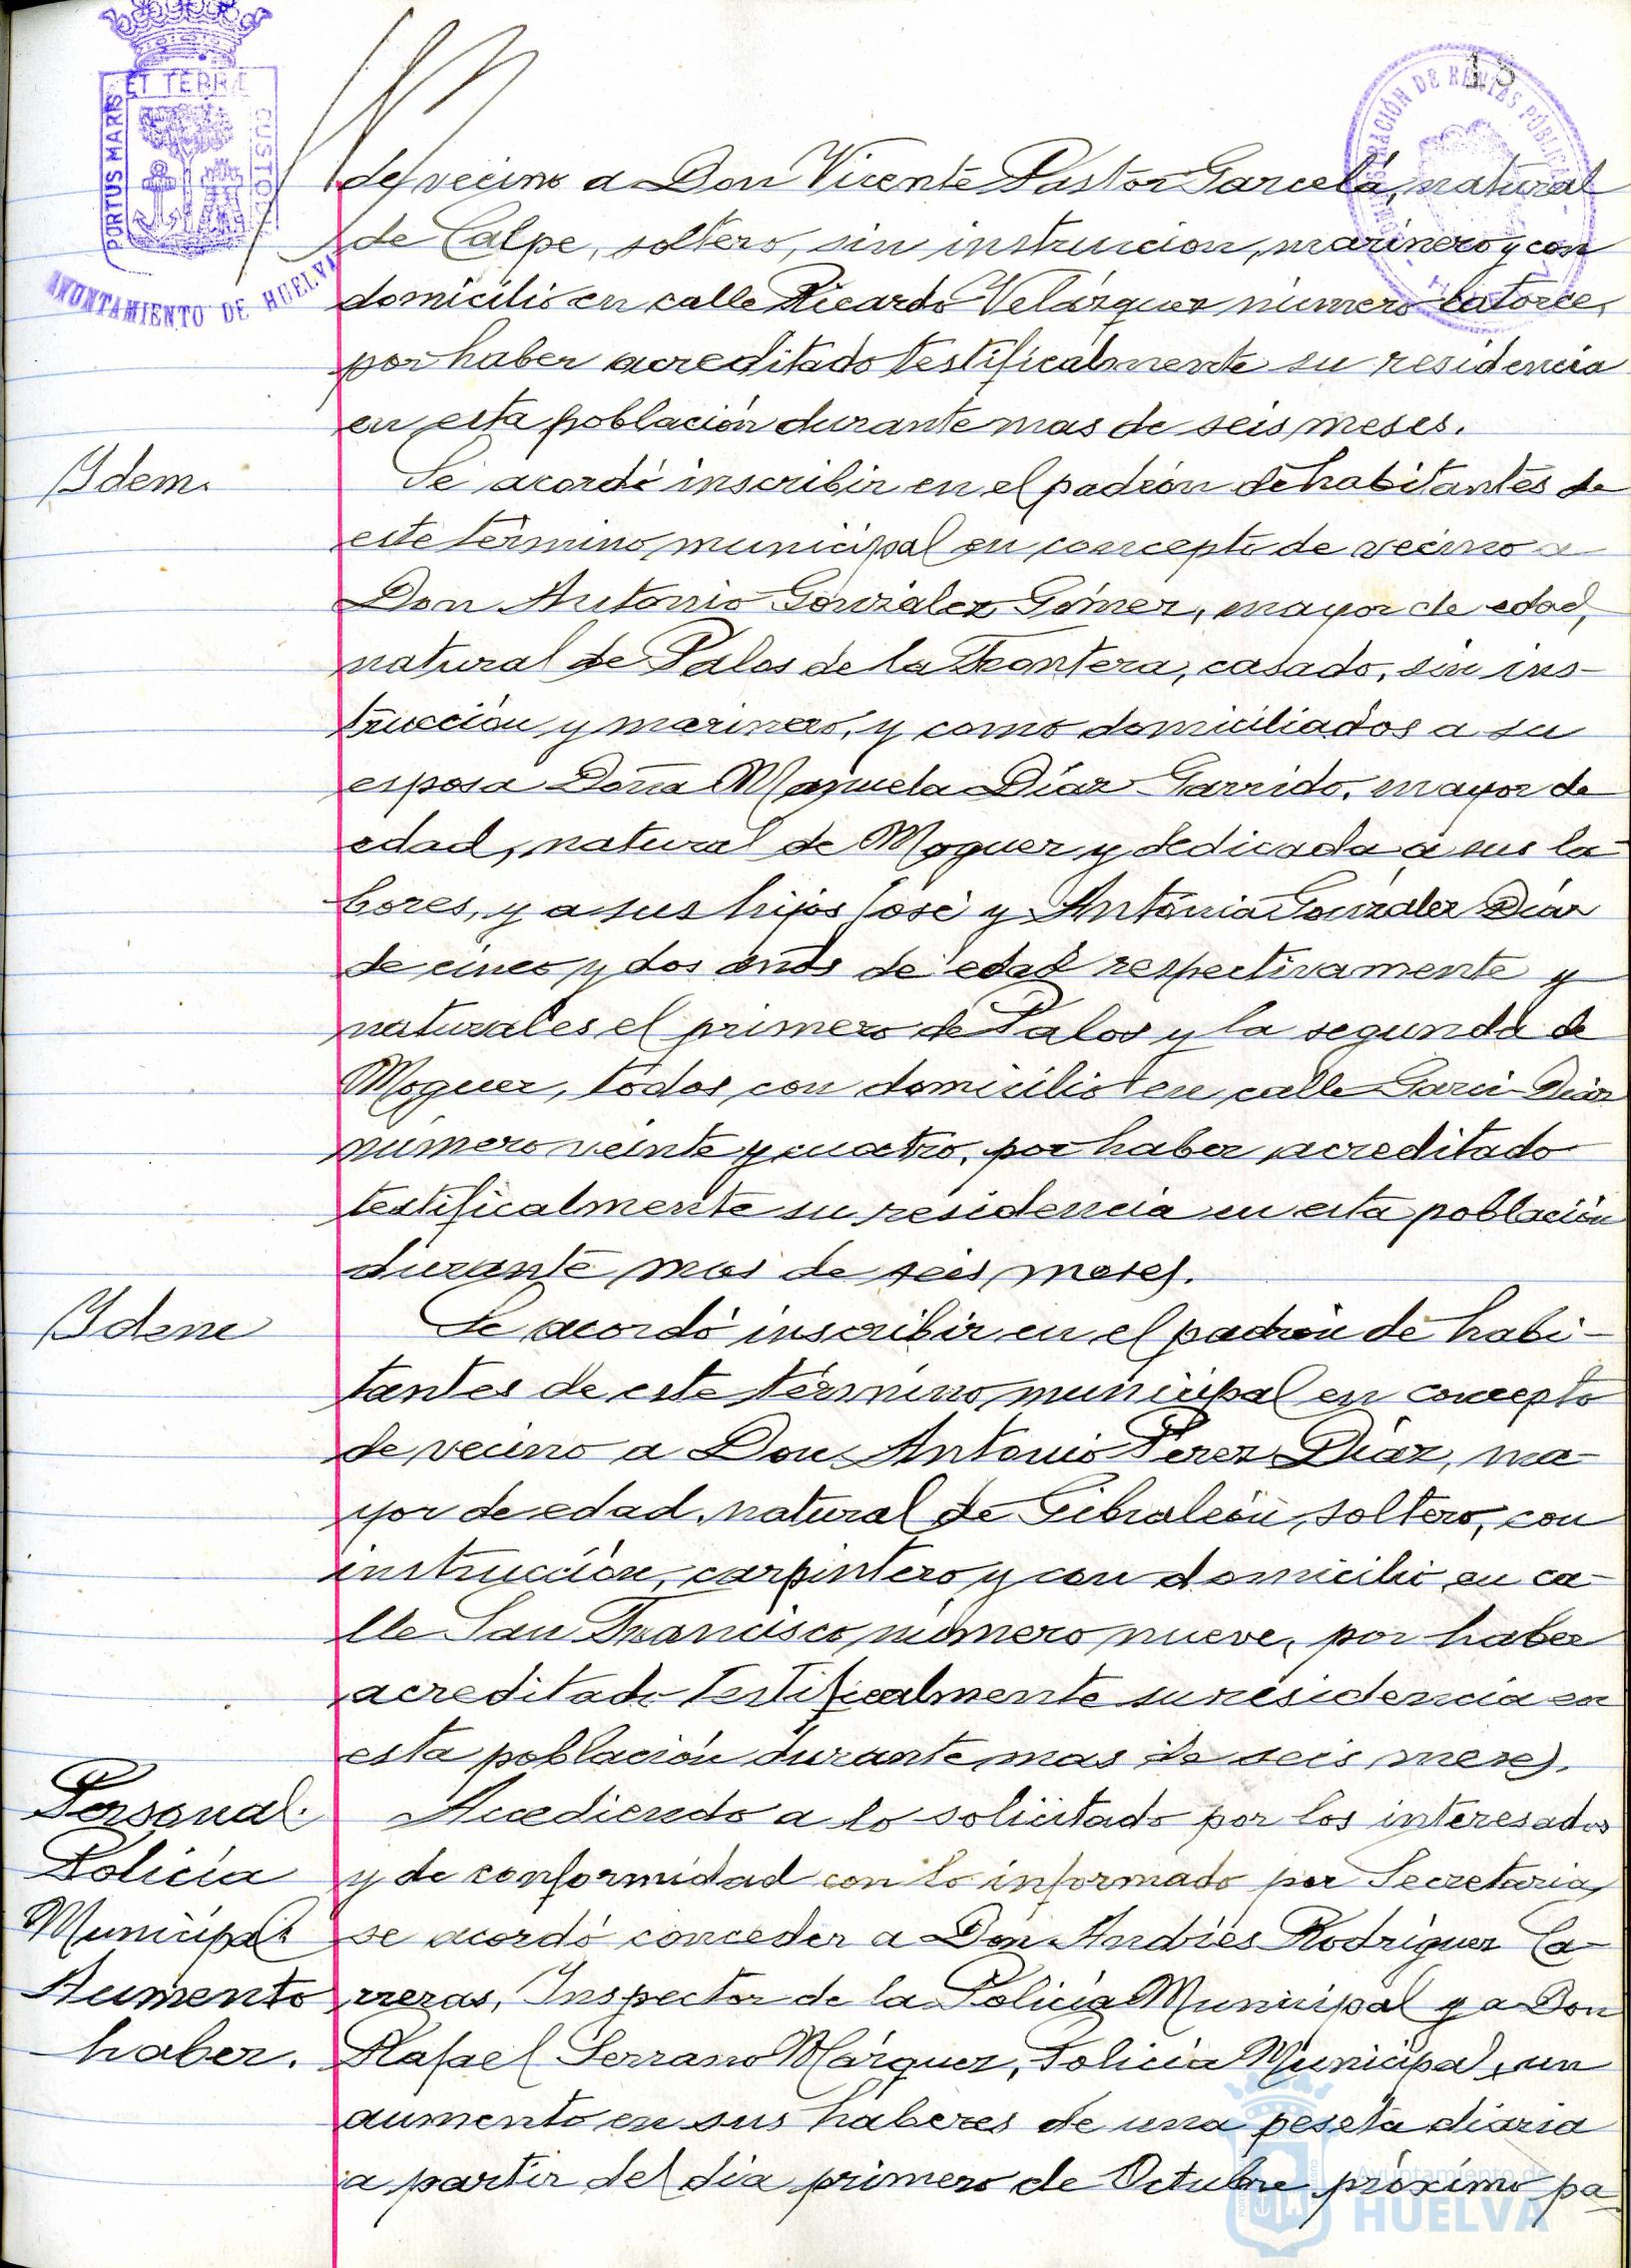 15
PORTUS MARIS ET TERRÆ CUSTODIA
AYUNTAMIENTO DE HUELVA
de vecino a Don Vicente Pastor Garcelá, natural
de Calpe, soltero, sin instrucion, marinero y con
domicilio en calle Ricardo Velázquez número catorce,
por haber acreditado testificalmente su residencia
en esta población durante mas de seis meses.
Idem.
Se acordó inscribir en el padrón de habitantes de
este término municipal en concepto de vecino a
Don Antonio González Gómez, mayor de edad,
natural de Palos de la Frontera, casado, sin ins-
trucción y marinero, y como domiciliados a su
esposa Doña Manuela Díaz Garrido, mayor de
edad, natural de Moguer y dedicada a sus la-
bores, y a sus hijos José y Antonia González Díaz
de cinco y dos años de edad respectivamente y
naturales el primero de Palos y la segunda de
Moguer, todos con domicilio en calle Garci-Díaz
número veinte y cuatro, por haber acreditado
testificalmente su residencia en esta población
durante mas de seis meses.
Idem
Se acordó inscribir en el padrón de habi-
tantes de este término municipal en concepto
de vecino a Don Antonio Perez Díaz, ma-
yor de edad, natural de Gibraleón, soltero, con
instrucción, carpintero y con domicilio en ca-
lle San Francisco número nueve, por haber
acreditado testificalmente su residencia en
esta población durante mas de seis meses.
Personal.
Policía
Municipal
Aumento
haber.
Accediendo a lo solicitado por los interesados
y de conformidad con lo informado por Secretaria,
se acordó conceder a Don Andrés Rodríguez Ca-
rreras, Inspector de la Policía Municipal y a Don
Rafael Serrano Márquez, Policía Municipal, un
aumento en sus haberes de una peseta diaria
a partir del día primero de Octubre próximo pa-
Ayuntamiento de
HUELVA